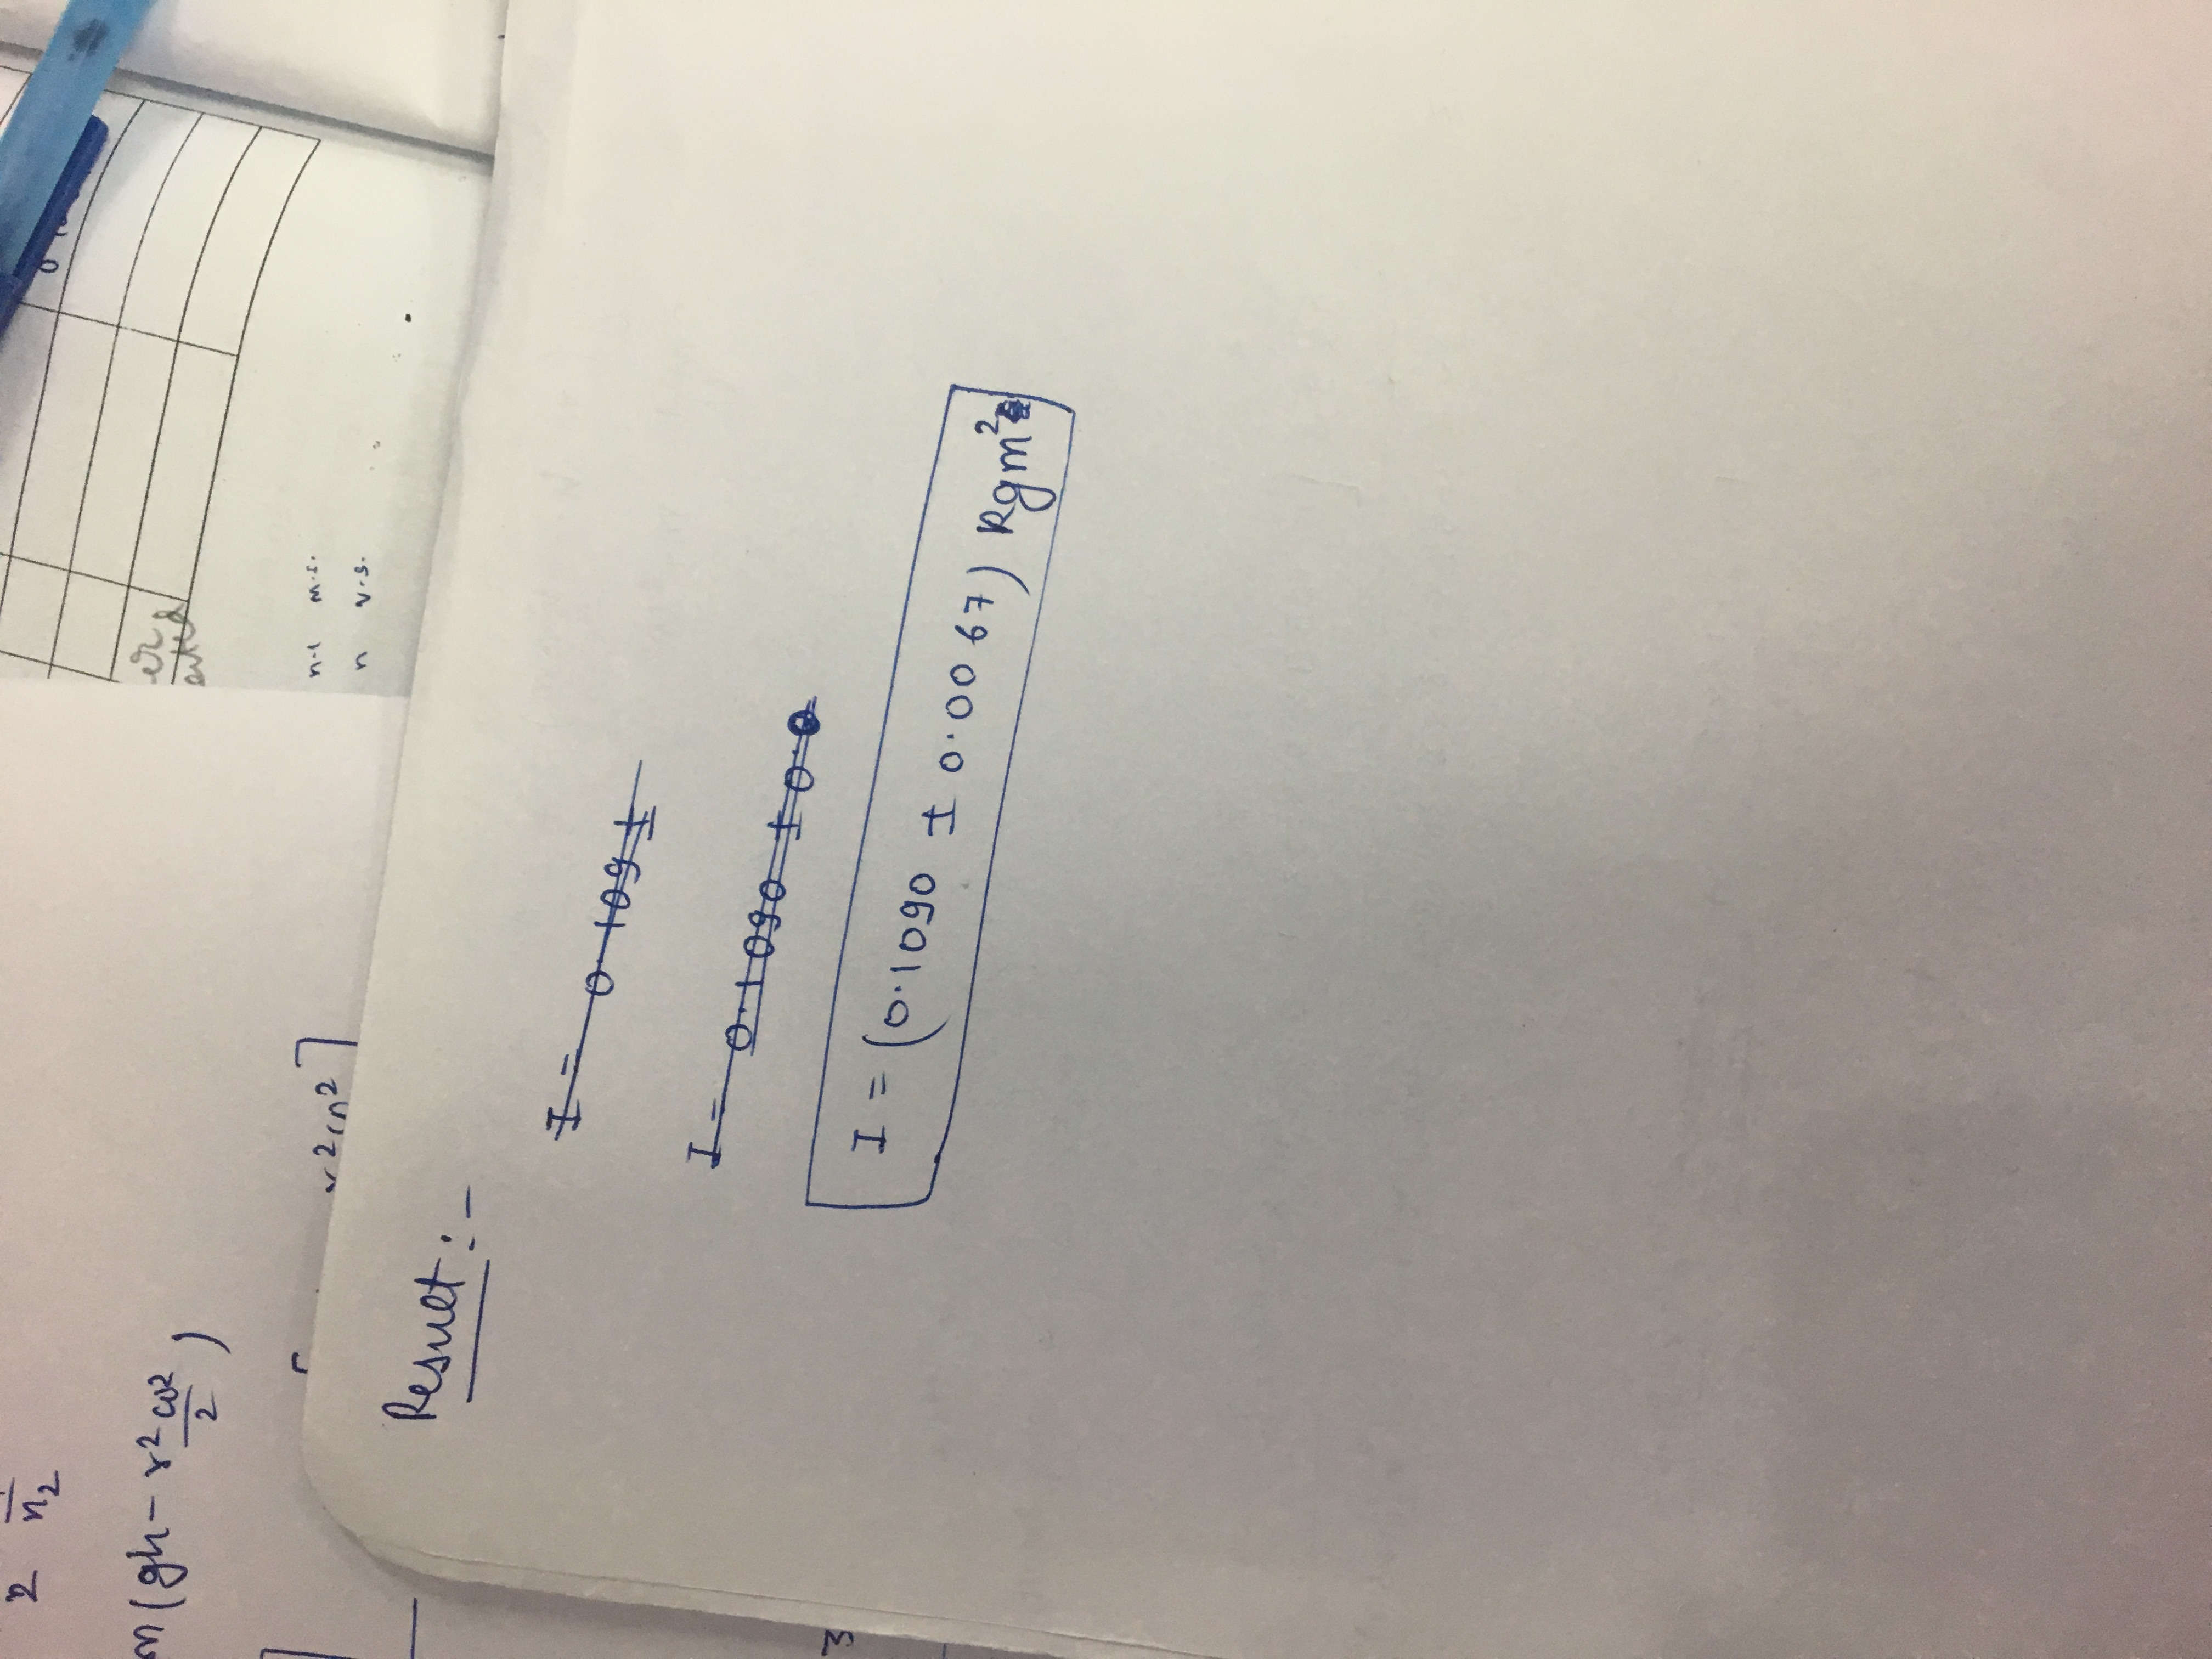 2 n₂
m(gh - r² ω²/2)
n-1 m.s.
n v.s.
Result :-
I = 0.109 ±
I = 0.1090 ± 0.0
I = (0.1090 ± 0.0067) Kgm²